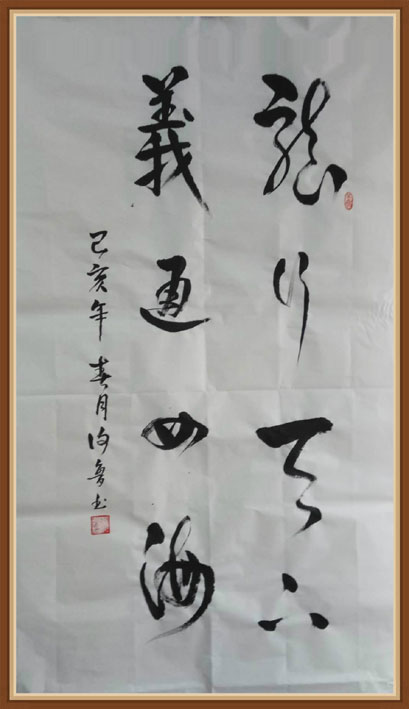 龍行天下
義通四海
己亥年春月许鲁书